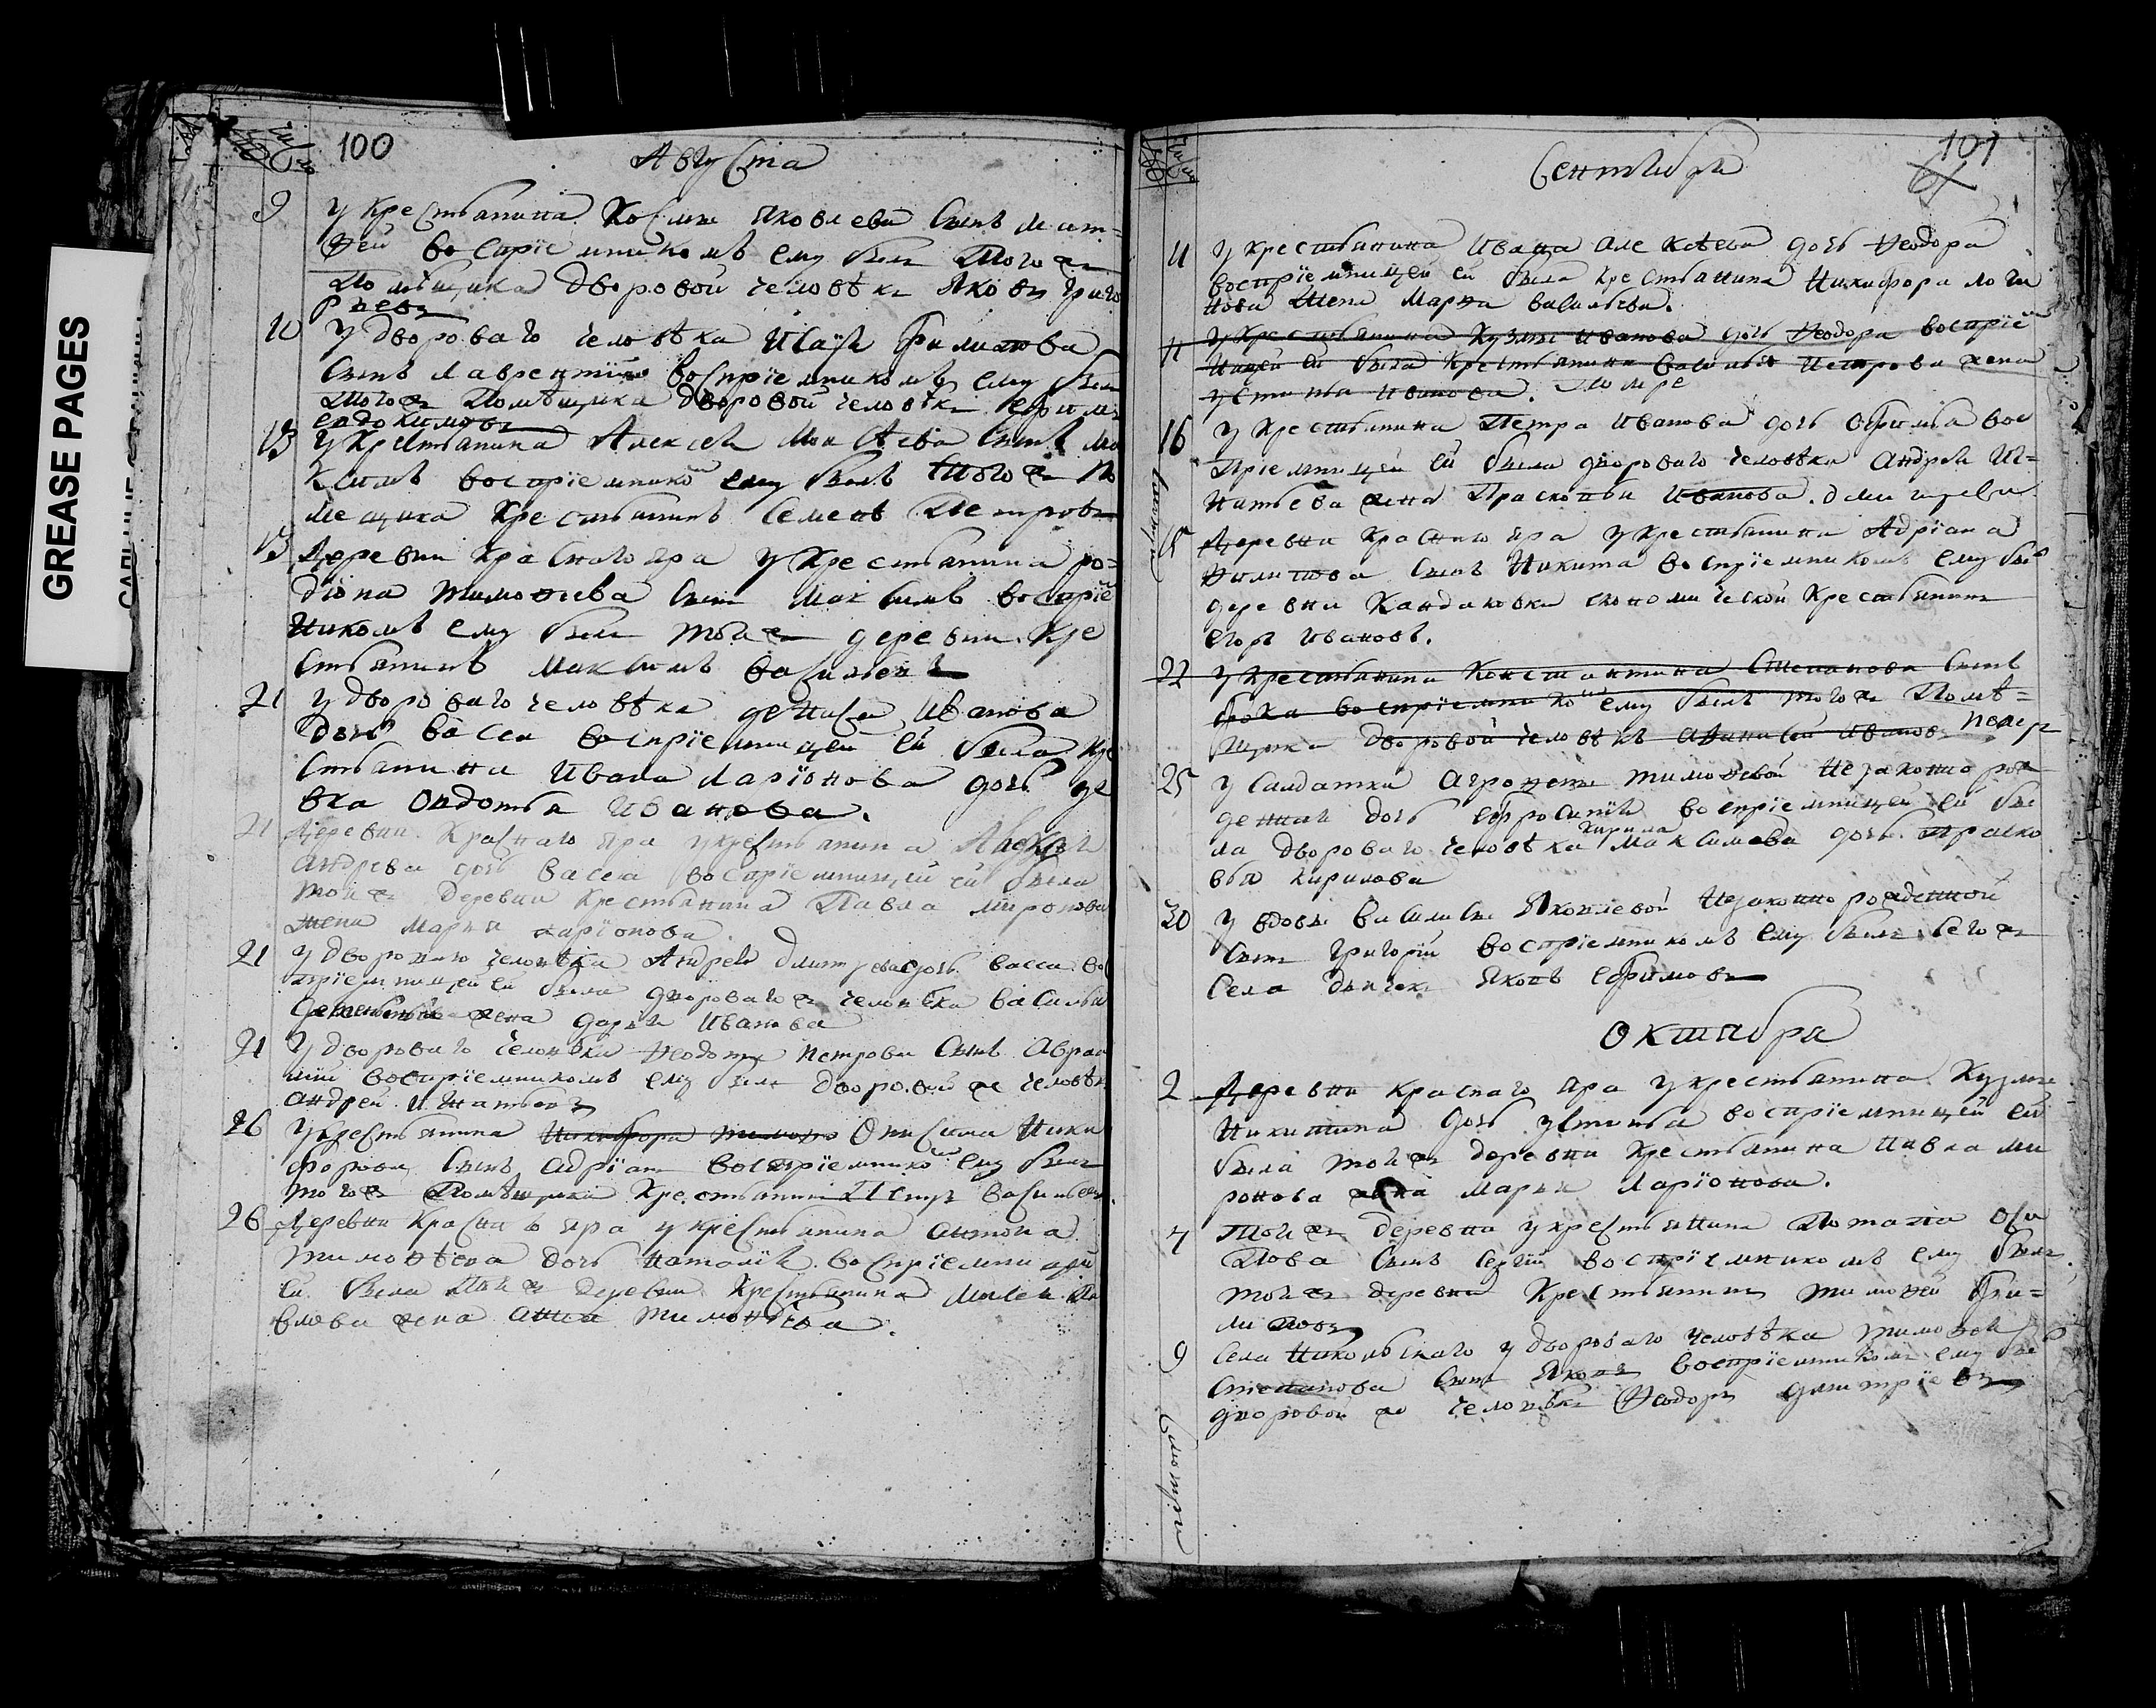 GREASE PAGES
100
Августа
9 у крестьянина Космы Яковлева сынъ Мат=
ѳей воспрїемникомъ ему былъ тогожъ
помѣщика дворовой человѣкъ Яковъ Григо
рьевъ
10 у двороваго человѣка Исаїя Филипова
сынъ Лаврентїй воспрїемникомъ ему былъ
тогожъ помѣщика дворовой человѣкъ Ефимъ
Евдокимовъ
13 у крестьянина Алексея сынъ Ма
ксимъ воспрїемнико ему былъ тогожъ по
мещика крестьянинъ Семенъ Петровъ
13 деревни Красного яра у крестьянина Ро=
дїона Тимоѳеева сынъ Максимъ воспрїе
никомъ ему былъ тойжъ деревни кре
стьянинъ Максимъ Васильевъ
21 у двороваго человѣка Дениса Иванова
дочь Васса воспрїемницей ей была кре
стьянина Ивана Ларїонова дочь де
вка Овдотья Иванова.
21 деревни Краснаго яра у крестьянина
Андрева дочь Васса воспрїемницей ей была
тойжъ деревни крестьянина Павла Миронова
жена Марья Ларїонова.
21 у двороваго человѣка Андрея Дмитрева дочь Васса вос
прїемницей ей была двороваго ж человѣка Василья
жена Дарья Иванова
21 у двороваго человѣка Ѳедота Петрова сынъ Авраа
мїй воспрїемникомъ ему былъ дворовой ж человѣкъ
Андрей Игнатьевъ
26 у крестьянина Никифора Тимоѳе Онисима Ники
форова сынъ Адрїанъ воспрїемнико ему былъ
тогожъ помѣщика крестьянинъ Петръ Васильевъ
26 деревни Краснаго яра у крестьянина Антона
Тимоѳеева дочь Наталїя воспрїемницей
ей была тойжъ деревни крестьянина Па
влова жена Анна Тимоѳеева.
101
Сентября
11 у крестьянина Ивана Алексѣева дочь Ѳеодора
воспрїемницей ей была крестьянина Никифора Логи
нова жена Марья Васильева.
11 у крестьянина Кузмы Иванова дочь Ѳеодора воспрїем
ницей ей была крестьянина Василья Петрова жена
Устинья Иванова. помре
16 у крестьянина Петра Иванова дочь Офимья вос
прїемницей ей была двороваго человѣка Андрея Иг=
натьева жена Прасковья Иванова.
15 деревни Краснаго яра у крестьянина Адрїана
Филипова сынъ Никита воспрїемникомъ ему бы
деревни Кандаковки економической крестьянинъ
Егоръ Ивановъ.
22 у крестьянина Константина Степанова сынъ
Фока воспрїемнико ему былъ тогожъ помѣ=
щика дворовой человѣкъ Иванов помер
25 у салдатки Тимоѳевой незаконнорож
денная дочь воспрїемницей ей бы
ла двороваго человѣка Кирила Максимова дочь Праско
вья Кирилова
30 у вдовы Василисы Яковлевой незаконнорожденной
сынъ Григорїй воспрїемникомъ ему былъ сегожъ
села дьячекъ Яковъ Ефимовъ
Октября
2 деревни Краснаго яра у крестьянина Кузмы
Никитина дочь Устинья воспрїемницей ей
была тойжъ деревни крестьянина Павла Ми
ронова жена Марья Ларїонова.
7 тойжъ деревни у крестьянина Потапа Оси
пова сынъ Сергїй воспрїемникомъ ему былъ
тойжъ деревни крестьянинъ Тимоѳей Фи=
липовъ
9 села Никольскаго у двороваго человѣка Тимоѳея
Степанова сынъ Яковъ воспрїемникомъ ему бы
дворовой ж человѣкъ Ѳеодоръ Дмитрїевъ